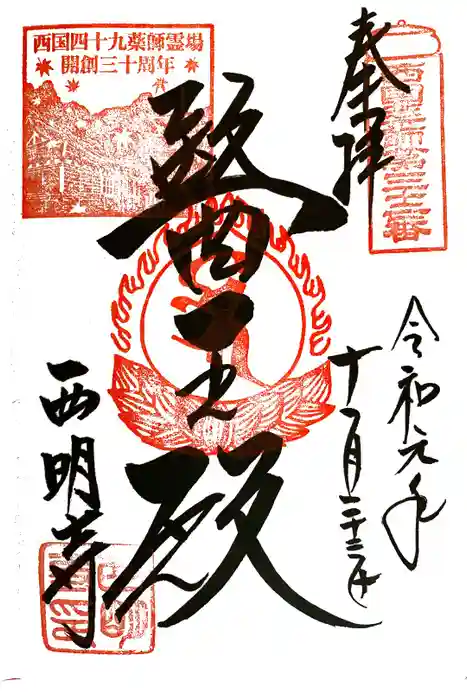 奉拝
西国薬師第三十二番
令和元年
十一月二十三日
醫王殿
西国四十九薬師霊場
開創三十周年
西明寺